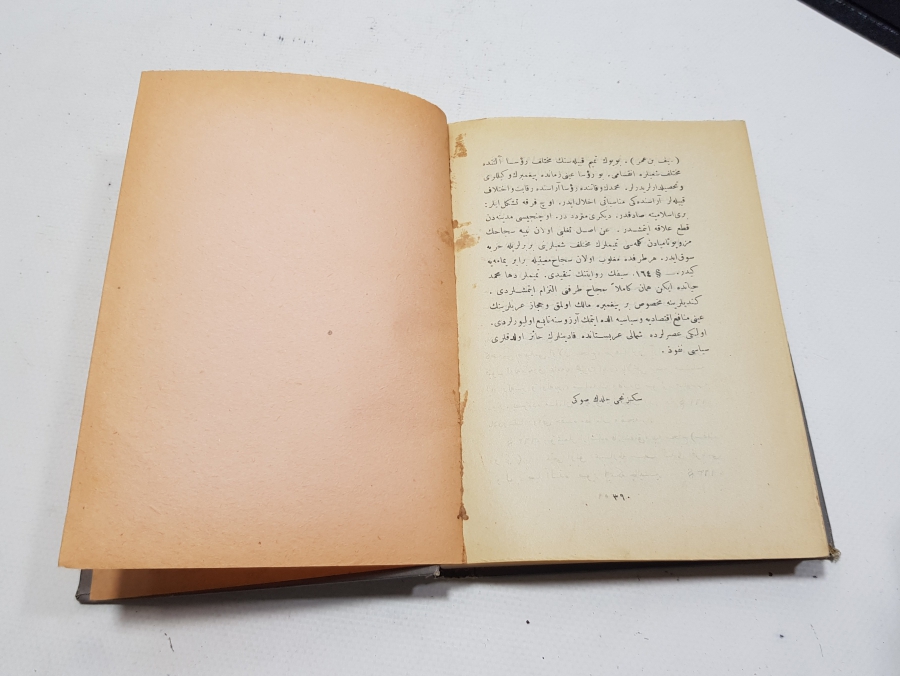 (سيف بن عمر) ، بويوك تميم قبيله‌سنك مختلف رؤسا آلتنده
مختلف شعبلره انقسامى. بو رؤسا عينى زمانده پيغمبرك وكيللرى
وتحصيلدارلريدرلر. محمدك وفاتنده رؤسا آراسنده رقابت واختلاف
قبيله‌لر آراسنده‌كى مناسباتى اخلال ايدر. اوچ فرقه تشكل ايلر:
برى اسلاميته صادقدر، ديكرى متردددر. اوچنجيسى مدينه‌دن
قطع علاقه ايتمشدر. عن اصل تغلبى اولان نبيه سجاحك
مزوپوتاميادن كلمه‌سى تميملرك مختلف شعبلرينى بربرلريله حربه
سوق ايدر. هر طرفده مغلوب اولان سجاح معيتيله برابر يمامه‌يه
كيدر. — § ١٦٤. سيفك روايتنك تنقيدى. تميملر دها محمد
حياتده ايكن همان كاملاً سجاح طرفنى التزام ايتمشلردى.
كنديلرينه مخصوص بر پيغمبره مالك اولمق وحجاز عربلرينك
عينى منافع اقتصاديه وسياسيه الده ايتمك آرزوسنه تابع اوليورلردى.
اولكى عصرلرده شمالى عربستانده قادينلرك حائز اولدقلرى
سياسى نفوذ.
سكزنجى جلدك صوكى
٣٩٠